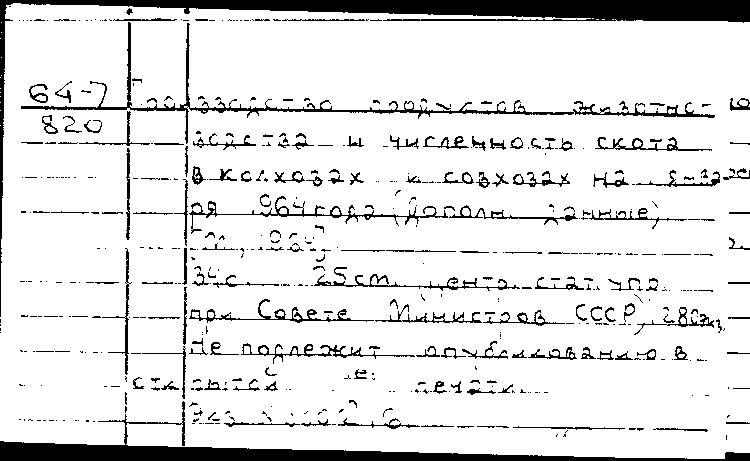 64-7 Производство продуктов животно-
820
водства и численность скота
в колхозах и совхозах на янва-
ря 1964 года (Дополн. данные)
[М., 1964]
34 с. 25 см. Центр. стат. упр.
при Совете Министров СССР) 280 экз.
Не подлежит опубликованию в
открытой печати.
Экз.